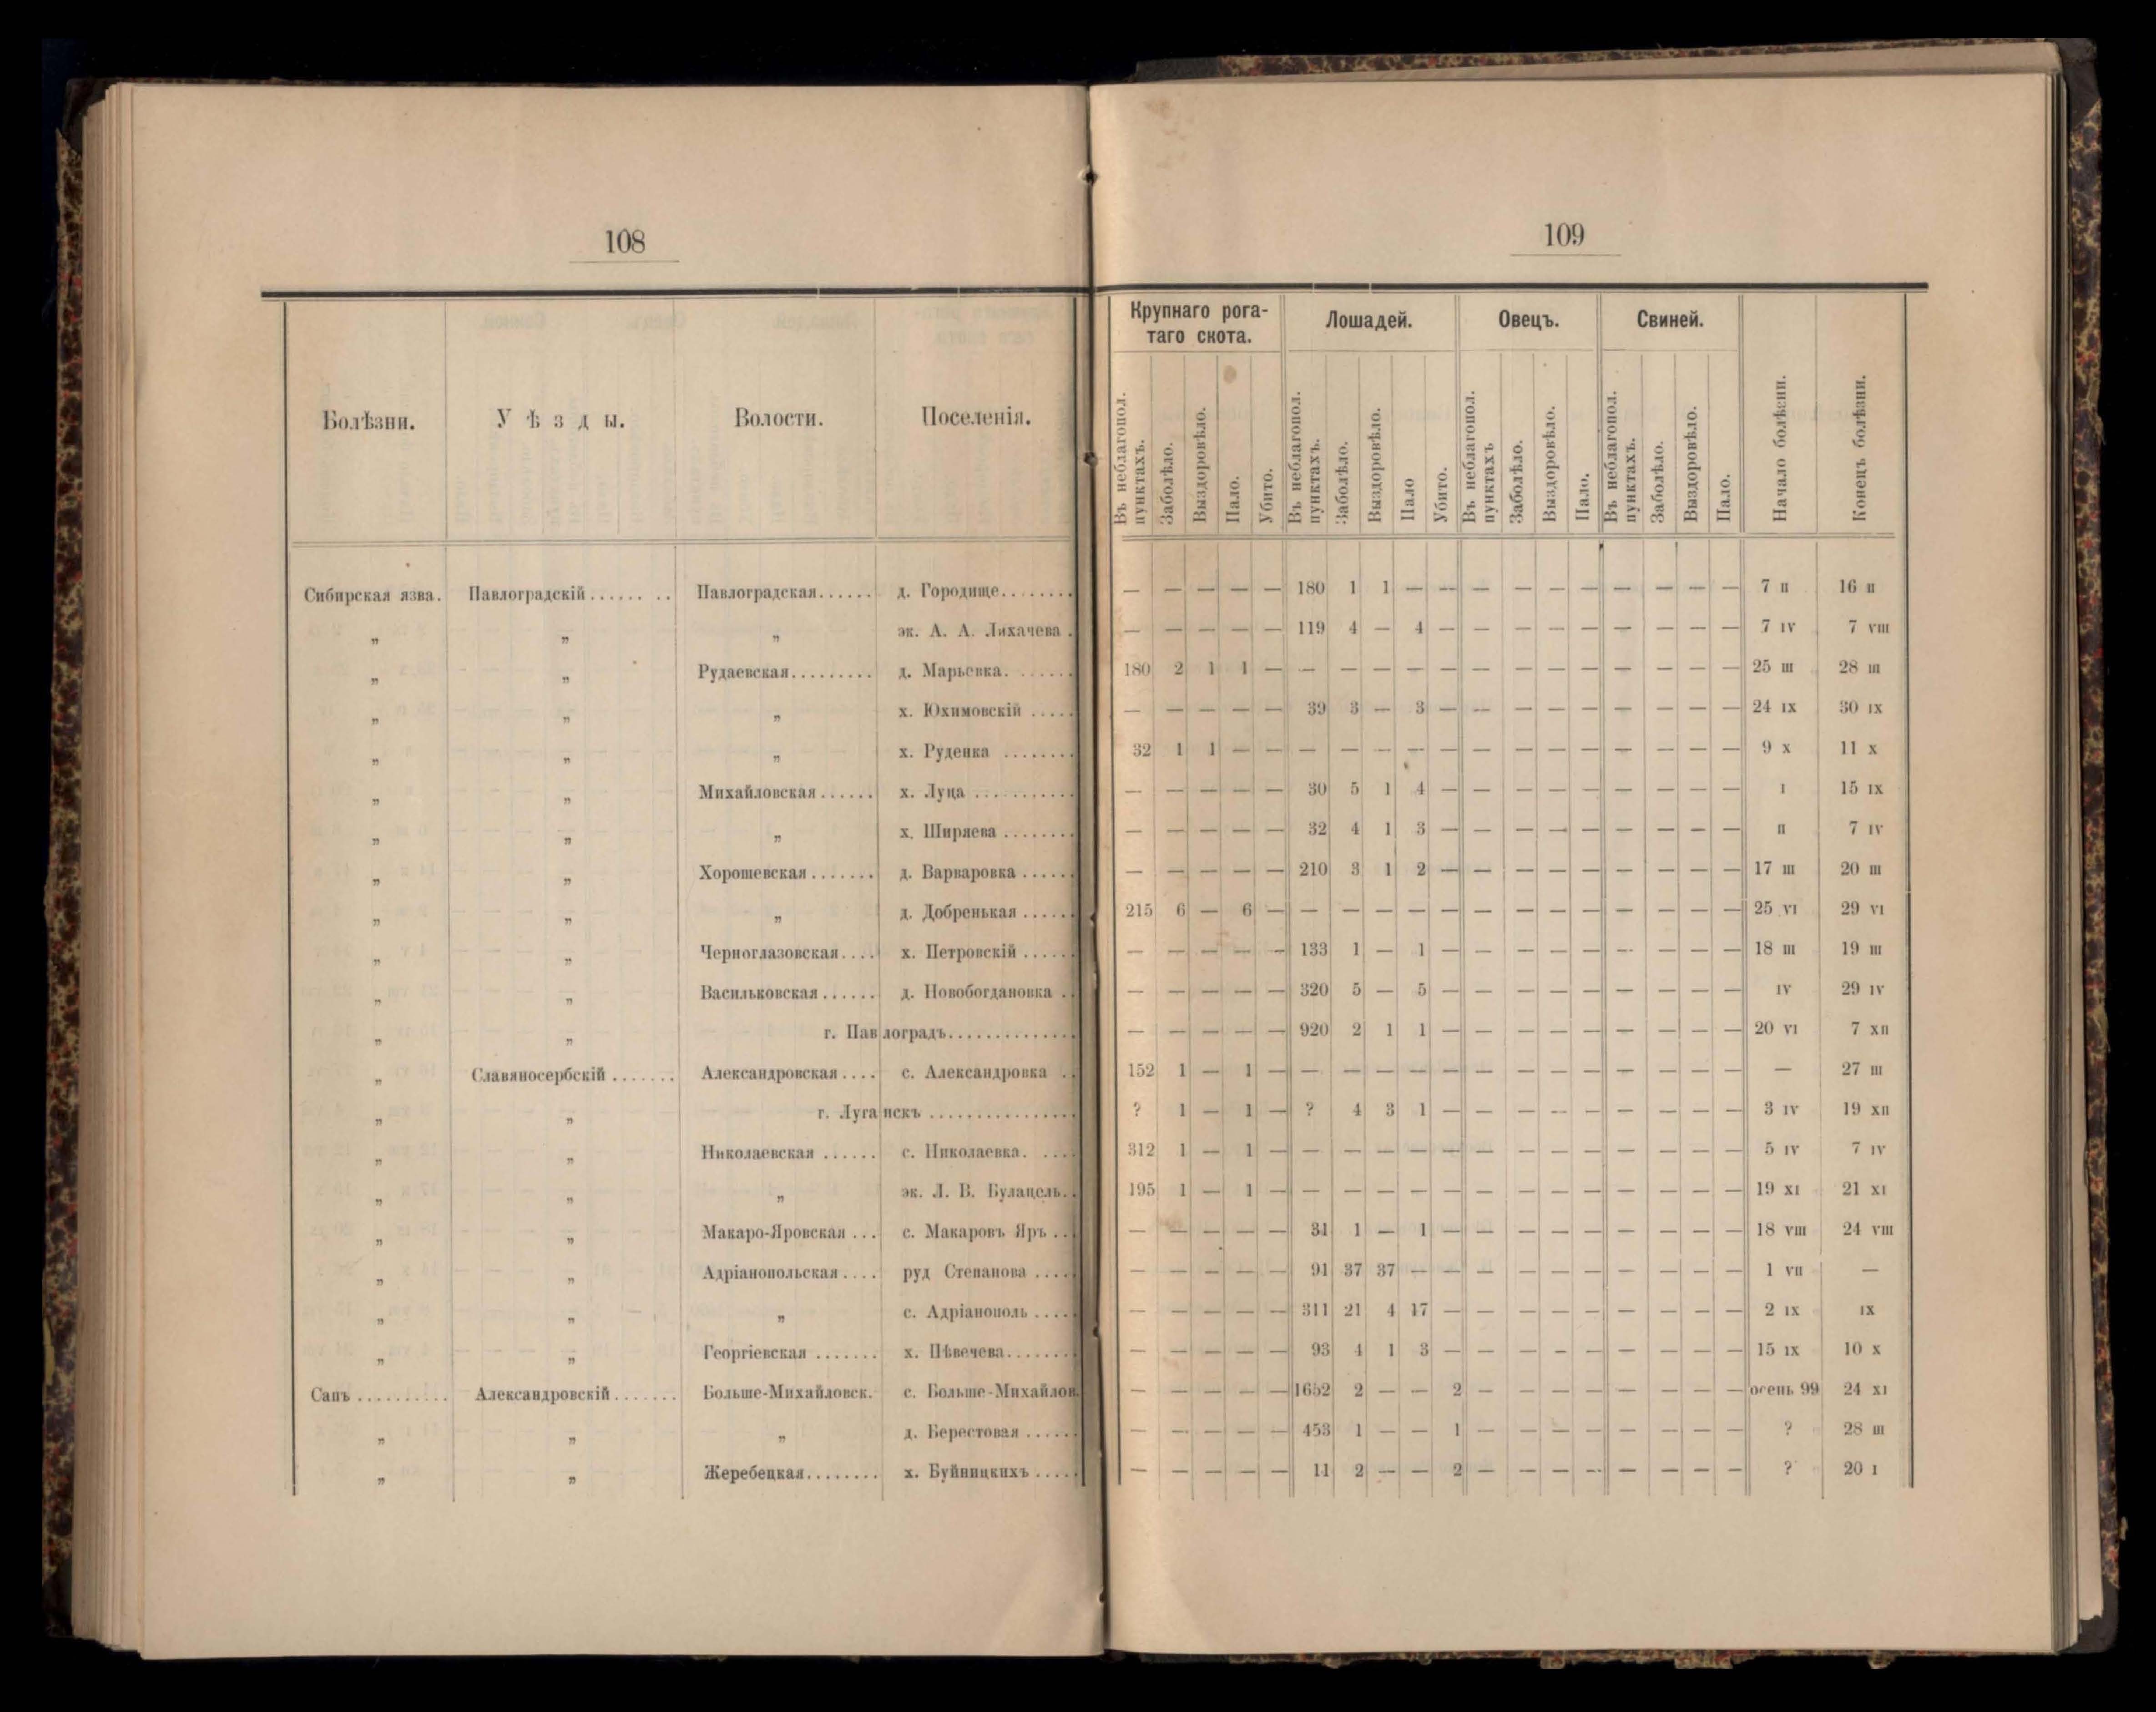 108
Болѣзни. Уѣзды. Волости. Поселенія.
Сибирская язва. Павлоградскій........ Павлоградская...... д. Городище........
„ „ „ эк. А. А. Лихачева .
„ „ Рудаевская......... д. Марьевка. ......
„ „ „ х. Юхимовскій .....
„ „ „ х. Руденка ........
„ „ Михайловская...... х. Луца ...........
„ „ „ х. Ширяева ........
„ „ Хорошевская....... д. Варваровка ......
„ „ „ д. Добренькая ......
„ „ Черноглазовская.... х. Петровскій ......
„ „ Васильковская...... д. Новобогдановка ..
„ „ г. Павлоградъ..............
„ Славяносербскій ....... Александровская.... с. Александровка ..
„ „ г. Луганскъ ................
„ „ Николаевская ...... с. Николаевка. ....
„ „ „ эк. Л. В. Булацель..
„ „ Макаро-Яровская ... с. Макаровъ Яръ ...
„ „ Адріанопольская .... руд Степанова .....
„ „ „ с. Адріанополь .....
„ „ Георгіевская ....... х. Пѣвечева.......
Сапъ .......... Александровскій....... Больше-Михайловск. с. Больше-Михайлов.
„ „ „ д. Берестовая ......
„ „ Жеребецкая........ х. Буйницкихъ .....
109
Крупнаго рога-
таго скота. Лошадей. Овецъ. Свиней.
Въ неблагопол. пунктахъ. Заболѣло. Выздоровѣло. Пало. Убито. Въ неблагопол. пунктахъ. Заболѣло. Выздоровѣло. Пало Убито. Въ неблагопол. пунктахъ Заболѣло. Выздоровѣло. Пало. Въ неблагопол. пунктахъ. Заболѣло. Выздоровѣло. Пало. Начало болѣзни. Конецъ болѣзни.
— — — — — 180 1 1 — — — — — — — — — — 7 II 16 II
— — — — — 119 4 — 4 — — — — — — — — — 7 IV 7 VIII
180 2 1 1 — — — — — — — — — — — — — — 25 III 28 III
— — — — — 39 3 — 3 — — — — — — — — — 24 IX 30 IX
32 1 1 — — — — — — — — — — — — — — — 9 X 11 X
— — — — — 30 5 1 4 — — — — — — — — — I 15 IX
— — — — — 32 4 1 3 — — — — — — — — — II 7 IV
— — — — — 210 3 1 2 — — — — — — — — — 17 III 20 III
215 6 — 6 — — — — — — — — — — — — — — 25 VI 29 VI
— — — — — 133 1 — 1 — — — — — — — — — 18 III 19 III
— — — — — 320 5 — 5 — — — — — — — — — IV 29 IV
— — — — — 920 2 1 1 — — — — — — — — — 20 VI 7 XII
152 1 — 1 — — — — — — — — — — — — — — — 27 III
? 1 — 1 — ? 4 3 1 — — — — — — — — — 3 IV 19 XII
312 1 — 1 — — — — — — — — — — — — — — 5 IV 7 IV
195 1 — 1 — — — — — — — — — — — — — — 19 XI 21 XI
— — — — — 31 1 — 1 — — — — — — — — — 18 VIII 24 VIII
— — — — — 91 37 37 — — — — — — — — — — 1 VII —
— — — — — 311 21 4 17 — — — — — — — — — 2 IX IX
— — — — — 93 4 1 3 — — — — — — — — — 15 IX 10 X
— — — — — 1652 2 — — 2 — — — — — — — — осень 99 24 XI
— — — — — 453 1 — — 1 — — — — — — — — ? 28 III
— — — — — 11 2 — — 2 — — — — — — — — ? 20 I